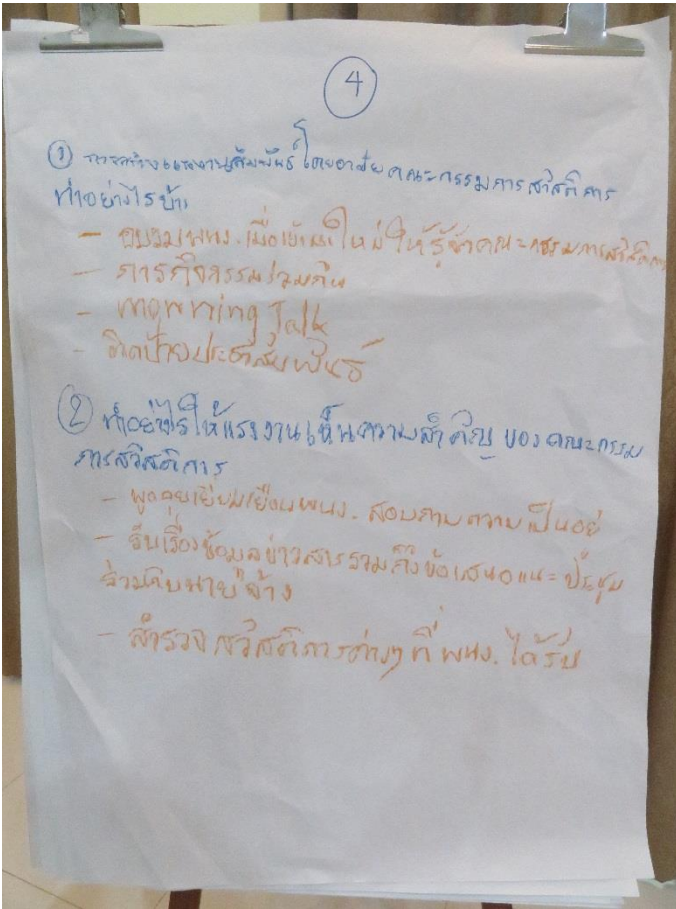 4
① การสร้างแรงงานสัมพันธ์โดยอาศัยคณะกรรมการสวัสดิการ
ทำอย่างไรบ้าง
- อบรมพนง.เมื่อเข้ามาใหม่ให้รู้จักคณะกรรมการสวัสดิการ
- ภารกิจกรรมร่วมกัน
- mornning Talk
- ติดป้ายประชาสัมพันธ์
② ทำอย่างไรให้แรงงานเห็นความสำคัญของคณะกรรม
การสวัสดิการ
- พูดคุยเยี่ยมเยือนพนง. สอบถามความเป็นอยู่
- รับเรื่องข้อมูลข่าวสารรวมถึงข้อเสนอแนะ ประชุม
ร่วมกับนายจ้าง
- สำรวจสวัสดิการต่างๆที่ พนง. ได้รับ